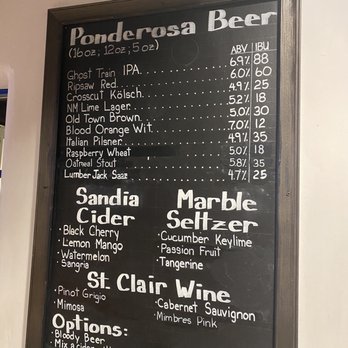 Ponderosa Beer
(16 oz; 12 oz; 5 oz)
ABV IBU
Ghost Train IPA 6.9% 88
Ripsaw Red 6.0% 60
Crosscut Kölsch 4.9% 25
NM Lime Lager 5.2% 18
Old Town Brown 5.0% 30
Blood Orange Wit 7.0% 12
Italian Pilsner 4.9% 35
Raspberry Wheat 5.0% 18
Oatmeal Stout 5.8% 35
Lumber Jack Saaz 4.7% 25
Sandia
Cider
·Black Cherry
·Lemon Mango
·Watermelon
Sangria
Marble
Seltzer
·Cucumber Keylime
·Passion Fruit
·Tangerine
St. Clair Wine
·Pinot Grigio
·Mimosa
·Cabernet Sauvignon
·Mimbres Pink
Options:
·Bloody Beer